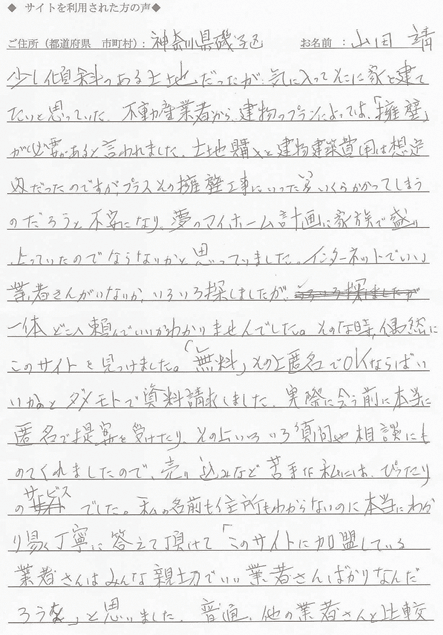 ◆ サイトを利用された方の声◆
ご住所（都道府県 市町村）：神奈川県磯子区 お名前：山田 靖
少し傾斜のある土地だったが、気に入ってそこに家を建て
たいと思っていた。不動産業者から建物のプランによっては、「擁壁」
が必要があると言われました。土地購入と建物建築費用は想定
内だったのですが、プラスその擁壁工事にいったいいくらかかってしまう
のだろうと不安になり、夢のマイホーム計画に家族で盛り
上っていたのでならないかと思っていました。インターネットでいい
業者さんがいないか、いろいろ探しましたが、
一体どこへ頼んでいいかわかりませんでした。そのな時、偶然に
このサイトを見つけました。「無料」その上匿名でOKならばい
いかなとダメモトで資料請求しました。実際に会う前に本当に
匿名で提案を受けたり、その上いろいろ質問や相談にも
のてくれましたので、売り込みなど苦手な私には、ぴったり
のサービスでした。私の名前も住所もわからないのに本当にわか
り易く丁寧に答えて頂けて「このサイトに加盟している
業者さんはみんな親切でいい業者さんばかりなんだ
ろうな」と思いました。普通、他の業者さんと比較